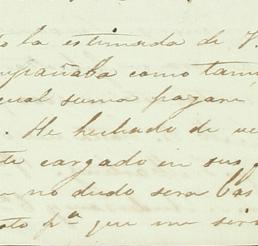 la estimada de V
mpañaba como tam
cual suma pagare
. He hechado de ve
te cargado en sus
no dudo sera bas
oto pª que me sir